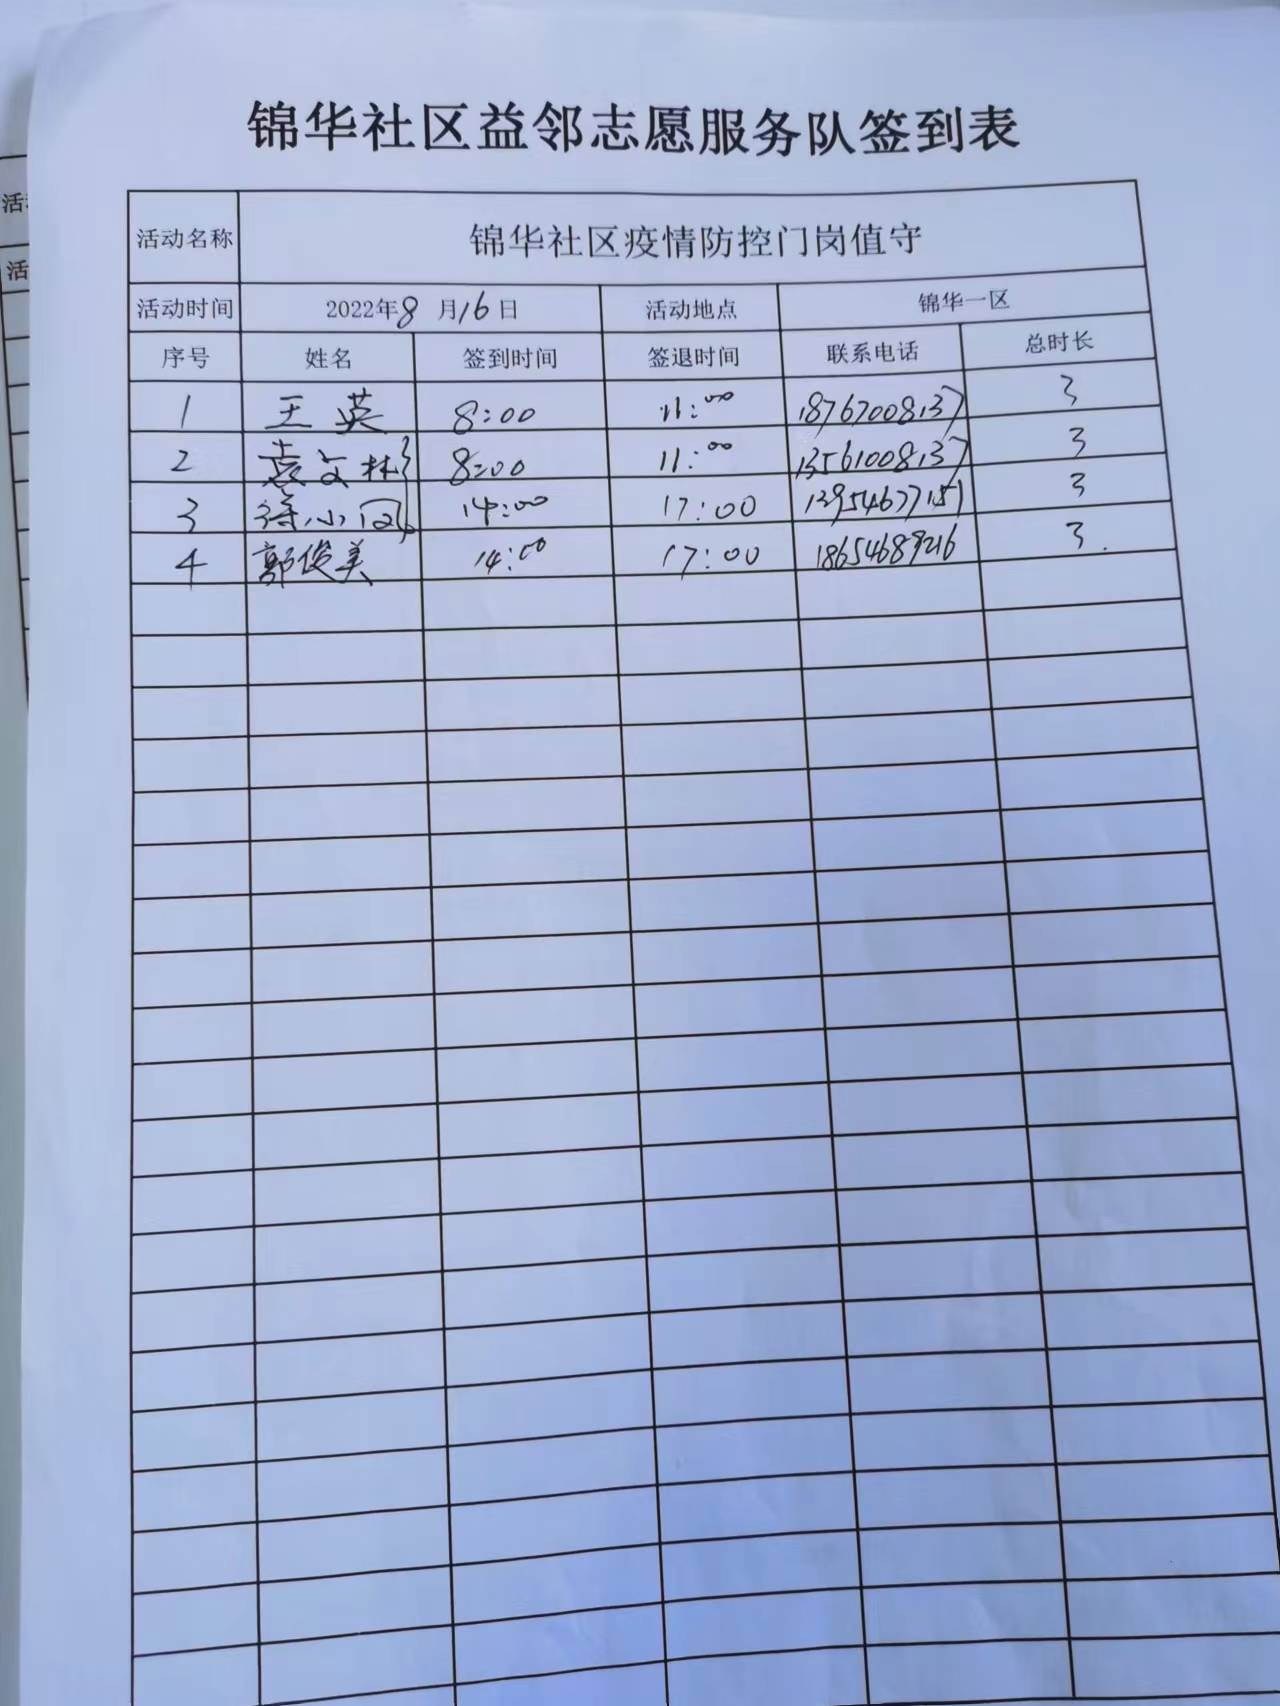 锦华社区益邻志愿服务队签到表
活动名称 锦华社区疫情防控门岗值守
活动时间 2022年8月16日 活动地点 锦华一区
序号 姓名 签到时间 签退时间 联系电话 总时长
1 王英 8:00 11:00 18767008137 3
2 袁文彬 8:00 11:00 13561008137 3
3 徐小凤 14:00 17:00 13954677151 3
4 郭俊美 14:00 17:00 18654689216 3
活
活